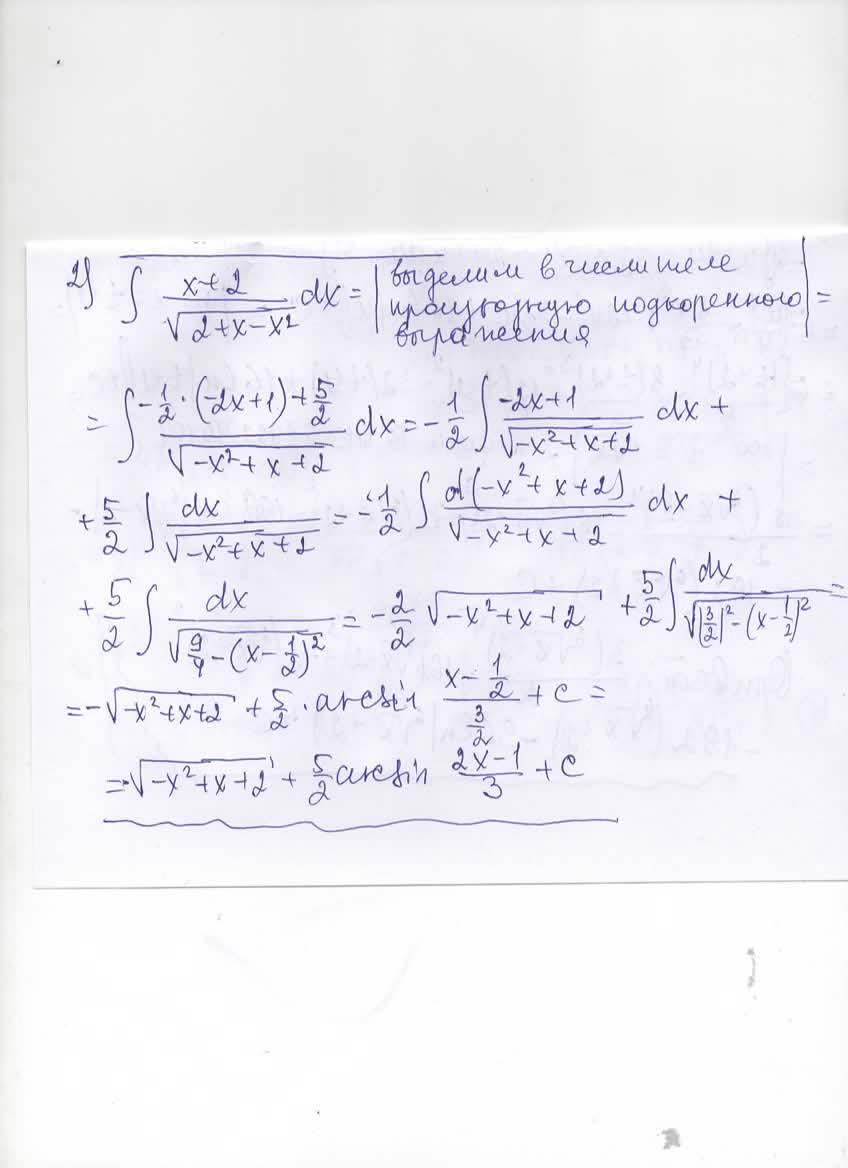 2) ∫ (x+2)/√(2+x−x²) dx = | выделим в числителе
производную подкоренного | =
выражения
= ∫ (−1/2·(−2x+1)+5/2)/√(−x²+x+2) dx = −1/2 ∫ (−2x+1)/√(−x²+x+2) dx +
+ 5/2 ∫ dx/√(−x²+x+2) = −1/2 ∫ d(−x²+x+2)/√(−x²+x+2) dx +
+ 5/2 ∫ dx/√(9/4−(x−1/2)²) = −2/2 √(−x²+x+2) + 5/2 ∫ dx/√((3/2)²−(x−1/2)²) =
= −√(−x²+x+2) + 5/2 · arcsin (x−1/2)/(3/2) + c =
= −√(−x²+x+2) + 5/2 arcsin (2x−1)/3 + c